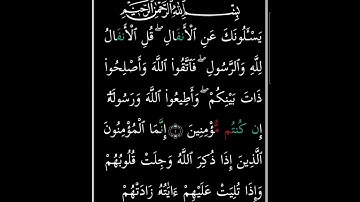 بِسْمِ ٱللَّهِ ٱلرَّحْمَٰنِ ٱلرَّحِيمِ
يَسْـَٔلُونَكَ عَنِ ٱلْأَنفَالِ ۖ قُلِ ٱلْأَنفَالُ
لِلَّهِ وَٱلرَّسُولِ ۖ فَٱتَّقُوا۟ ٱللَّهَ وَأَصْلِحُوا۟
ذَاتَ بَيْنِكُمْ ۖ وَأَطِيعُوا۟ ٱللَّهَ وَرَسُولَهُۥٓ
إِن كُنتُم مُّؤْمِنِينَ ۝١ إِنَّمَا ٱلْمُؤْمِنُونَ
ٱلَّذِينَ إِذَا ذُكِرَ ٱللَّهُ وَجِلَتْ قُلُوبُهُمْ
وَإِذَا تُلِيَتْ عَلَيْهِمْ ءَايَٰتُهُۥ زَادَتْهُمْ